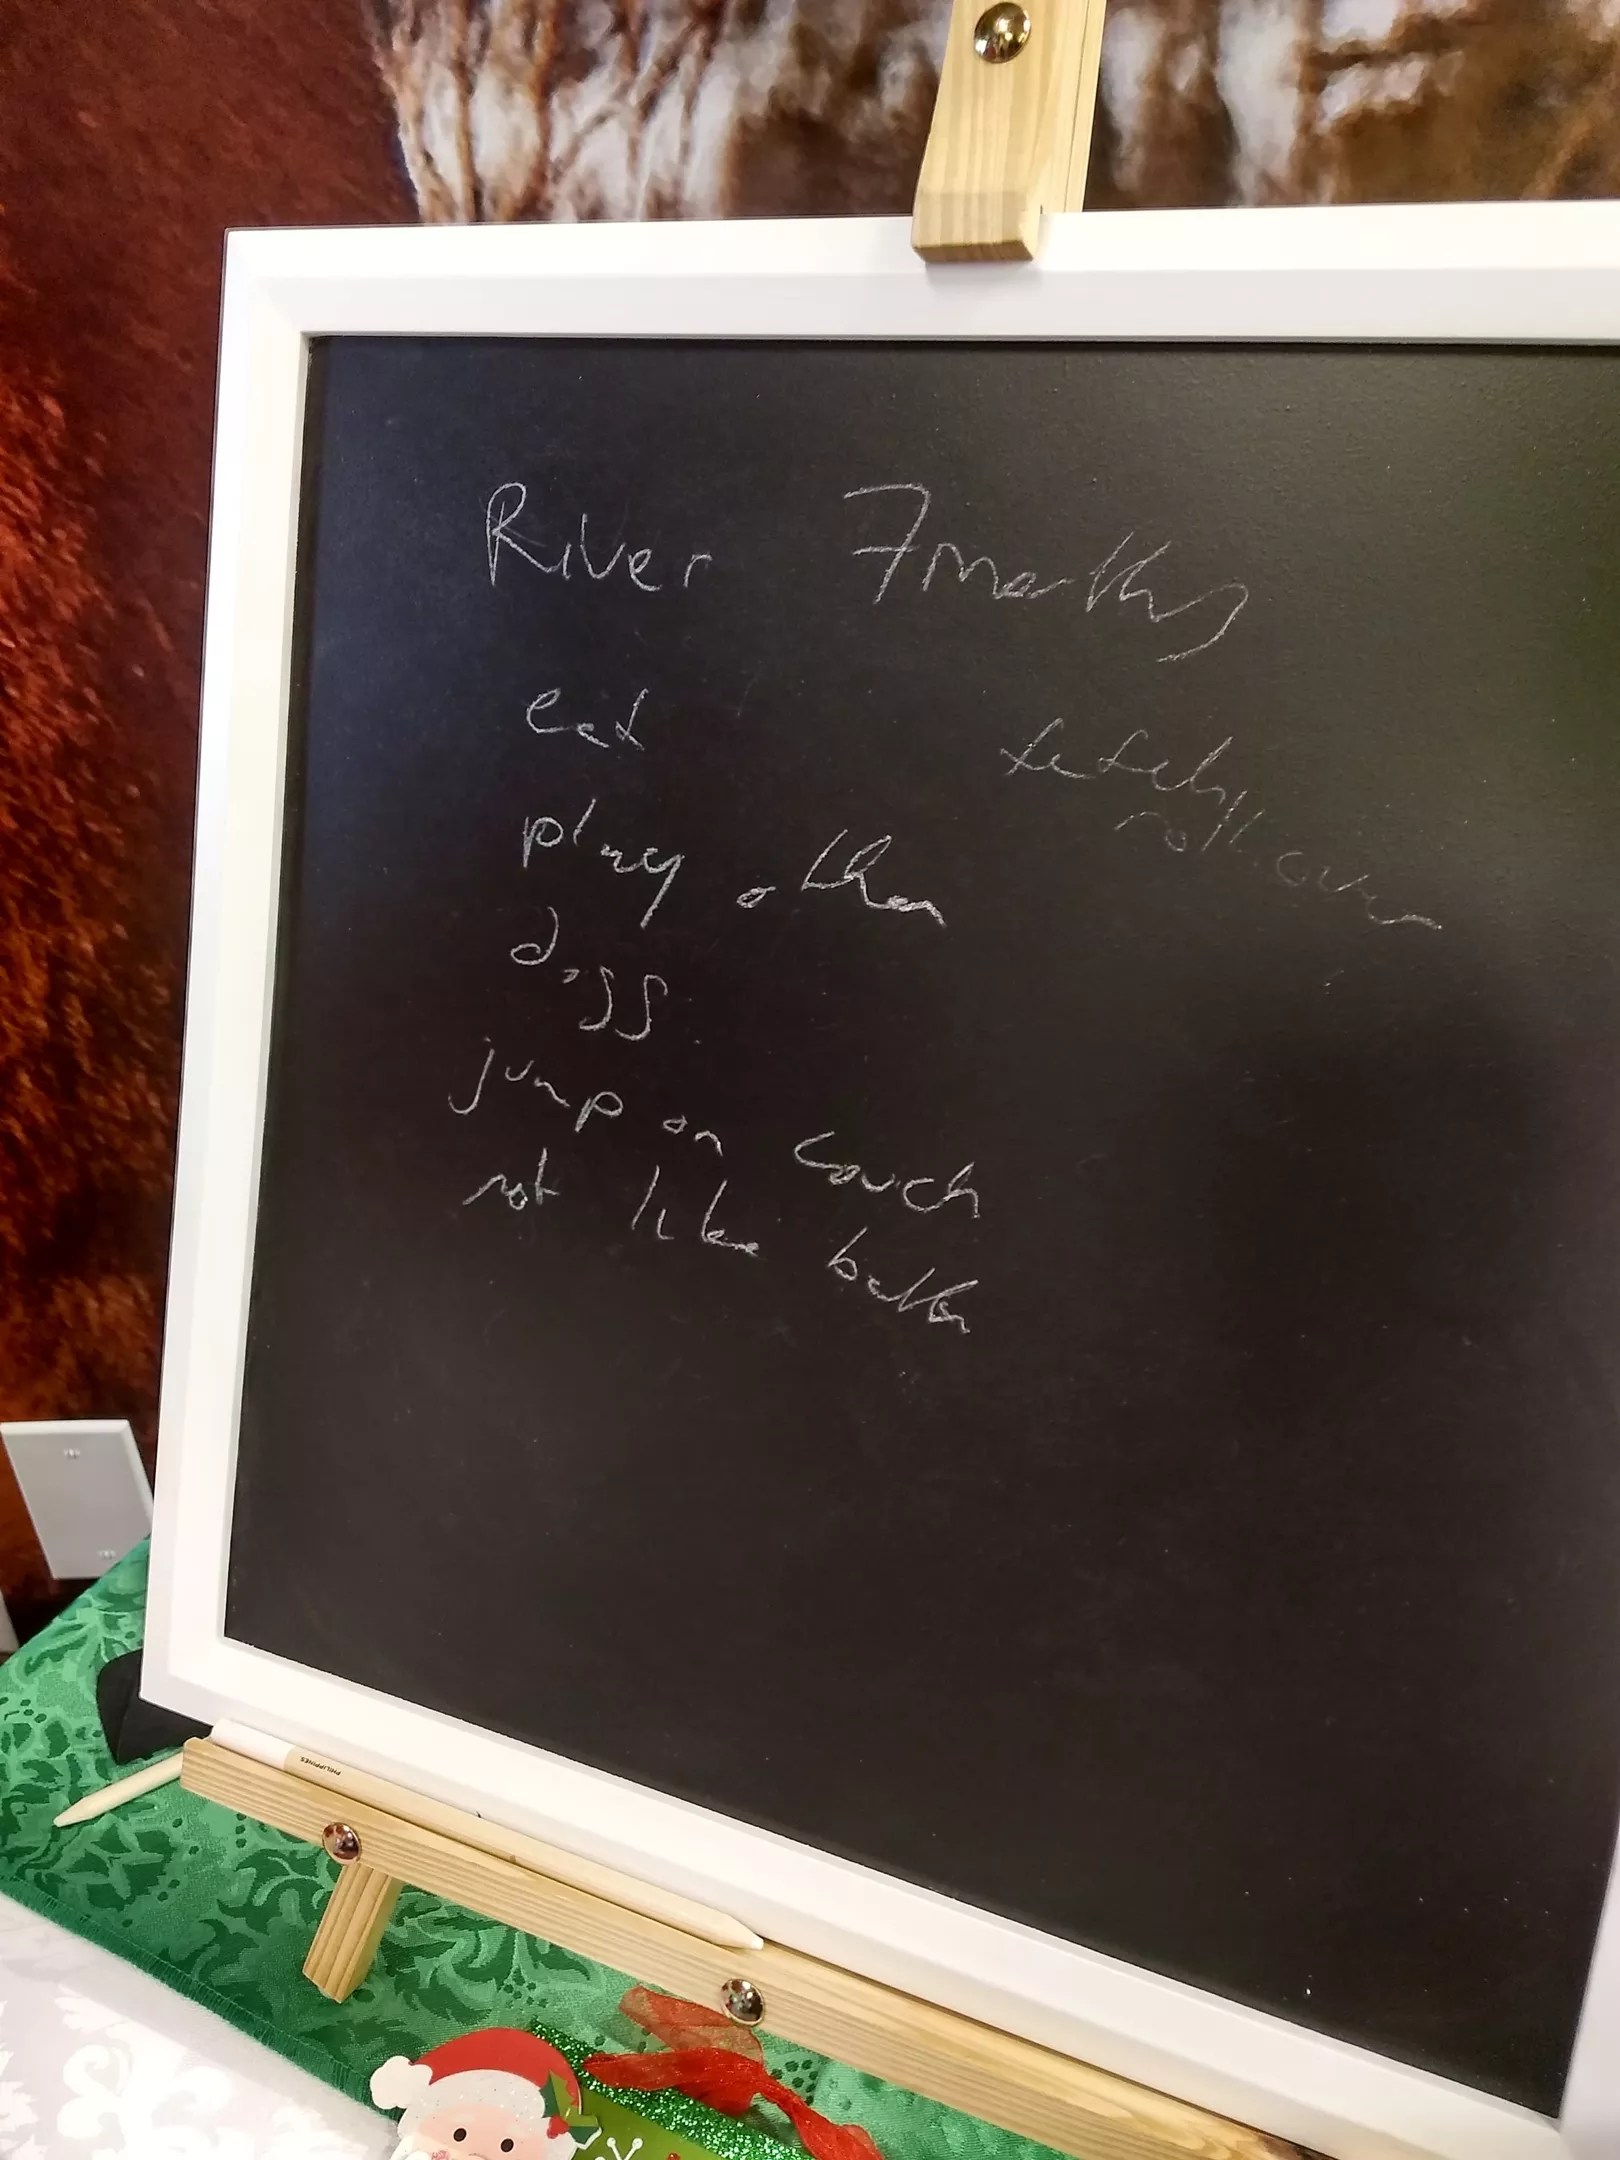 River 7 months
eat
play other
dogs
jump on couch
not like bath
fetch
roll over
PHILIPPINES